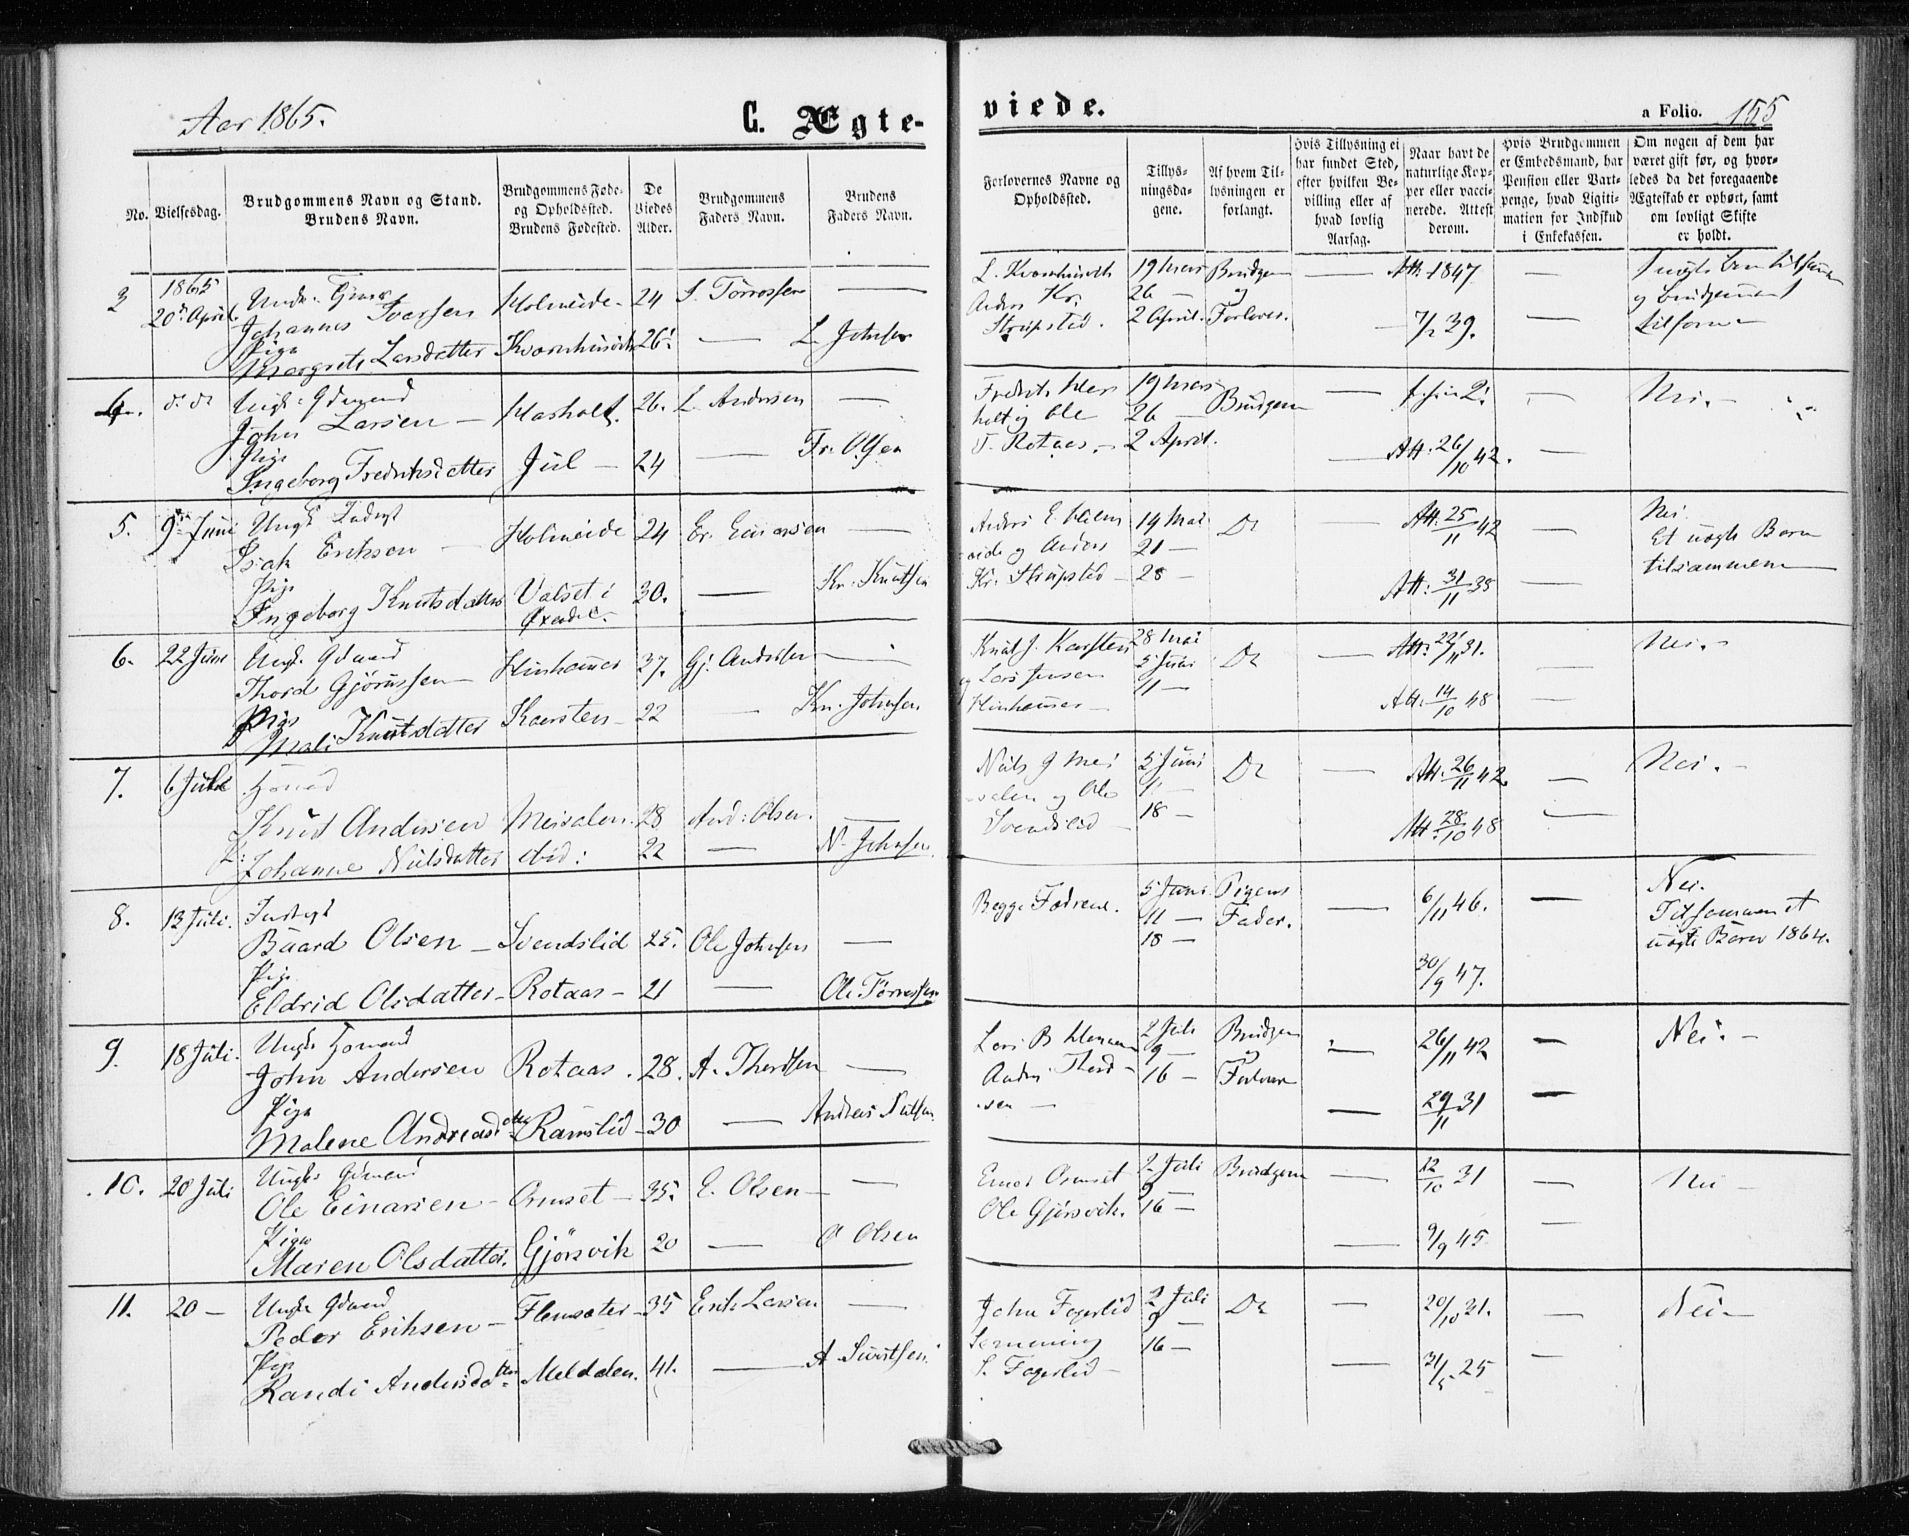 Aar 1865.
C. Ægte-
viede.
a Folio. 155
No.
Vielsesdag.
Brudgommens Navn og Stand.
Brudens Navn.
Brudgommens Føde-
og Opholdssted.
Brudens Fødested.
De
Viedes
Alder.
Brudgommens
Faders Navn.
Brudens
Faders Navn.
Forlovernes Navne og
Opholdssted.
Tillys-
ningsda-
gene.
Af hvem Til-
lysningen er
forlangt.
Hvis Tillysning ei
har fundet Sted,
efter hvilken Be-
villing eller af
hvad lovlig
Aarsag.
Naar havt de
naturlige Kop-
per eller vacci-
nerede. Attest
derom.
Hvis Brudgommen
er Embedsmand, har
Pension eller Vart-
penge, hvad Ligiti-
mation for Indskud
i Enkekassen.
Om nogen af dem har
været gift før, og hvor-
ledes da det foregaaende
Ægteskab er ophørt, samt
om lovligt Skifte
er holdt.
3 1865
20de April.
Johannes Iversen Holmeide 24 I. Torrossen —
Pige
Margrete Larsdatter Kvornhusvik 26 — L. Johnsen
L. Kvornhusvik 19 Mars Brudgom — Att. 1847 —
Anders Kr. 26 — og
Stripsted. 2 April. Forlover. — 7/7 39. —
4. d. d. Ungk. Gdmand
John Larsen — Harholt. 26. L. Andersen —
Pige
Ingeborg Fredriksdatter Jul — 24 — Fr. Olsen
19 Mars
holt og Ole 26 — Brudgom — Nei. —
T. Rotaas. — 2 April. — Att. 26/10 42. —
5. 9de Juni Ungk. Inderst
Isak Eriksen — Holmeide 24 Er. Einarsen —
Pige
Ingeborg Knutsdatter Valset i 30. — Kn. Knutsen
Øxendal.
14 Mai Do — Att. 25/11 42 — Nei
eide og Anders 21 — Et uægte Barn
Kr. Stripsted — 28 — Att. 31/11 35 — tilsammen
6. 22 Juni Ungk. Gdmand
Thord Gjørussen — Hinhammer 37. Gj. Andersen —
Pige
Mali Knutsdatter Karsten — 22 — Kn. Johnsen.
Knut J. Karsten 28 Mai
og Lars Jensen 5 Juni Do — Att. 22/11 31. — Nei. —
Hinhammer — 11 — Att. 14/10 48 —
7. 6 Juli Gmand
Knud Andersen Meisalen. 28 And: Olsen. —
P: Johanne Nielsdatter ibid: 22 — N. Johnsen.
Niels J Mei 5 Juni Do — Att. 26/11 42. — Nei. —
salen og Ole 11 —
Svendslid — 18 — Att. 28/10 48 —
8. 13 Juli. Inderst
Baard Olsen — Svendslid 25. Ole Johnsen —
Pige
Eldrid Olsdatter — Rotaas — 21 — Ole Torressen
Begge Fædrene. 5 Juni Pigens — 6/11 46. — Nei.
11 — Fader. Tilsammen et
18 — uægte Barn 1864.
30/9 47.
9. 18 Juli. Ungk. Gmand
John Andersen Rotaas. 28. A. Thordsen —
Pige
Malene Andreasdtter Ramslid — 30 — Andreas Nielsen.
2 Juli Brudgom — 26/11 42 — Nei. —
9 — og
Anders Thord — 16 — Forlover
sen — — 29/11 31 —
10. 20 Juli Ungk. Gdmand
Ole Einarsen — Ormset — 35. E. Olsen — —
Pige
Maren Olsdatter. Gjørsvik 20 — O Olsen
Einar Ormset 2 Juli Brudgom — 12/10 31 — Nei —
9 —
Ole Gjørsvik. 16 — — 9/9 45 —
11. 20 — Ungk. Gdmand
Peder Eriksen — Flemsæter — 35 Erik Larsen —
Pige
Randi Andersdtter — Meldalen. 41. — A Sivertsen.
John Fagerlid 2 Juli Do — 20/10 31. — Nei —
9 —
16 —
S. Fagerlid — — 31/5 25 —